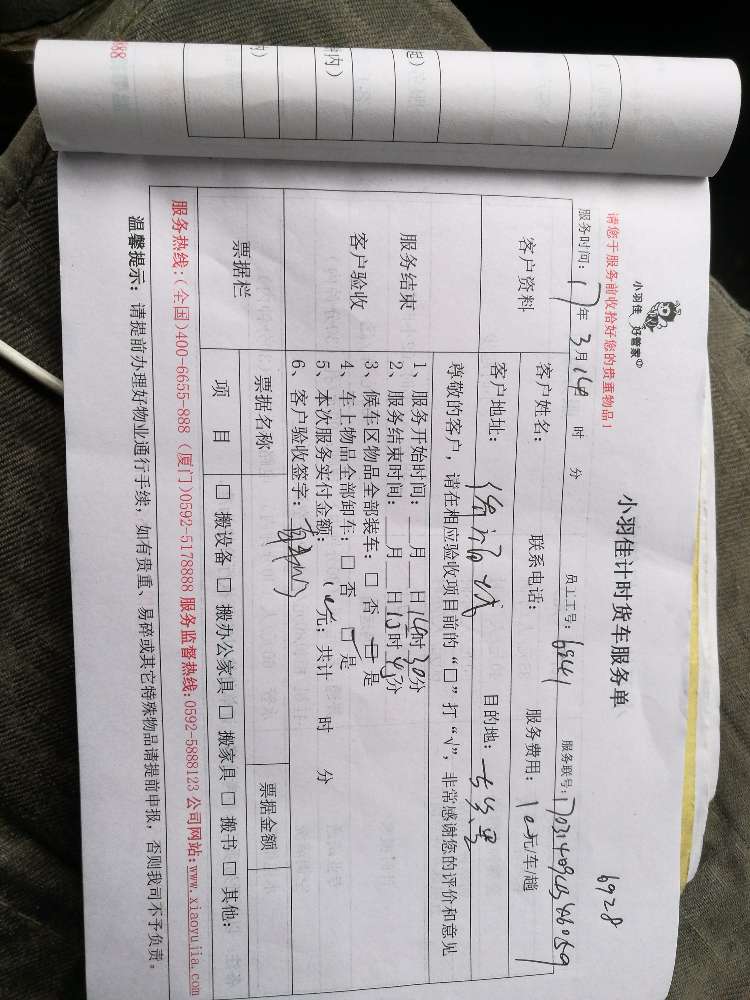 请您于服务前收拾好您的贵重物品!
小羽佳 好管家
小羽佳计时货车服务单
6928
服务时间: 17年 3月 14 时 分 员工工号: 6941 服务联号:
客户资料
客户姓名: 联系电话: 服务费用: 元/车/趟
客户地址: 目的地:
服务结束
客户验收
尊敬的客户, 请在相应验收项目前的“口”打“√”, 非常感谢您的评价和意见
1、服务开始时间: __月__日14时30分
2、服务结束时间: __月__日15时45分
3、候车区物品全部装车: □ 否 □ 是
4、车上物品全部卸车: □ 否 □ 是
5、本次服务实付金额: 元; 共计 时 分
6、客户验收签字:
票据栏
票据名称 票据金额
项 目 □ 搬设备 □ 搬办公家具 □ 搬家具 □ 搬书 □ 其他:
服务热线:(全国)400-6655-888 (厦门)0592-5178888 服务监督热线:0592-5888123 公司网站:www.xiaoyujia.com
温馨提示: 请提前办理好物业通行手续, 如有贵重、易碎或其它特殊物品请提前申报, 否则我司不予负责。